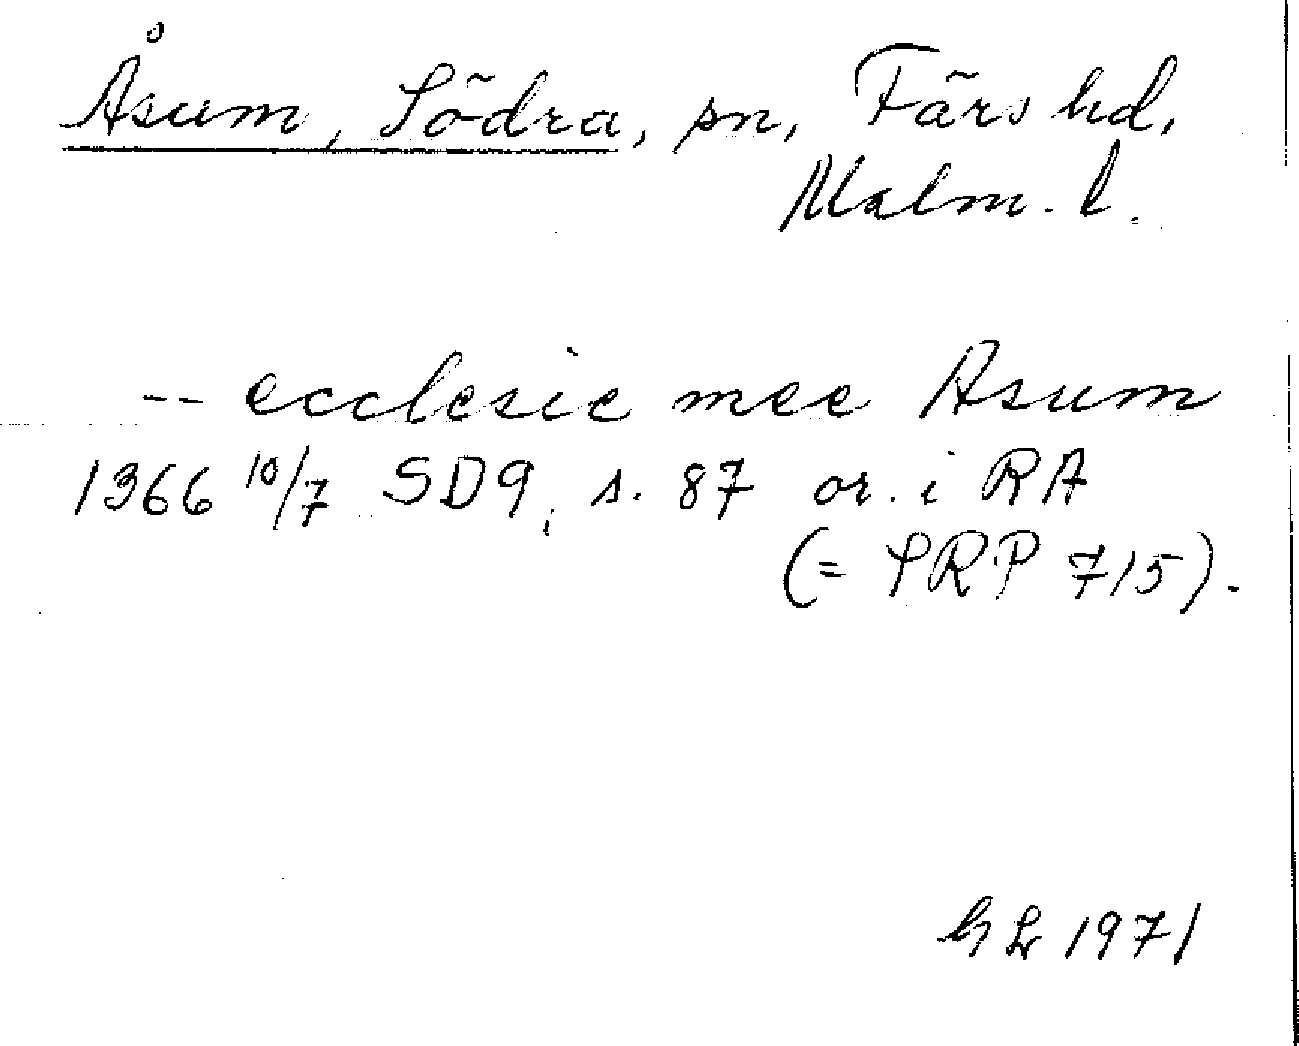 Åsum, Södra, sn, Färs hd,
Malm. l.
-- ecclesie mee Asum
1366 10/7 SD9, s. 87 or. i RA
(= SRP 715).
GL 1971